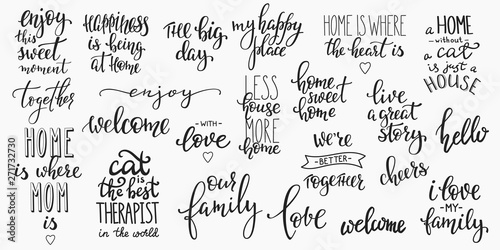 enjoy
this
sweet
moment
Happiness
is being
at Home
the big
day
my happy
place
HOME IS WHERE
the heart is
a HOME
without
a cat
is just a
HOUSE
together
enjoy
LESS
house
MORE
home
home
sweet
home
live
a great
story
hello
HOME
is where
MOM
is
welcome
-WITH-
love
cat
is the
best
THERAPIST
in the world
our
family
we're
-BETTER-
TOGETHER
cheers
love
welcome
i love
-MY-
family
Adobe Stock | #271732730